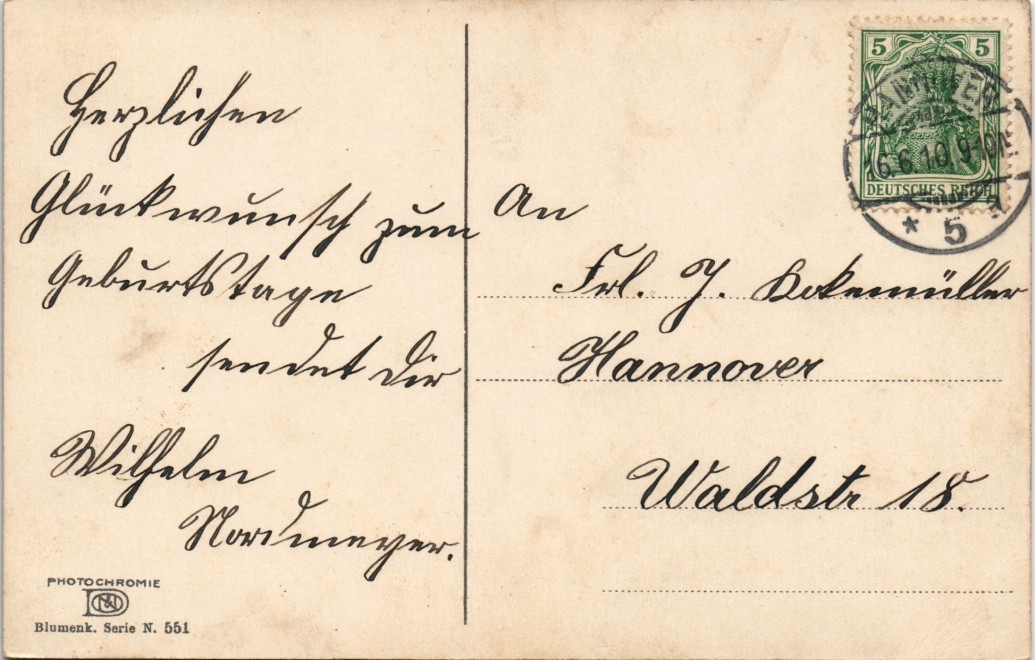 Herzlichen
Glückwunsch zum
Geburtstage
sendet Dir
Wilhelm
Nordmeyer.
PHOTOCHROMIE
Blumenk. Serie N. 551
5 5
DEUTSCHES REICH
16.6.10.9-10V.
* 5 a
An
Frl. J. Kokemüller
Hannover
Waldstr 18.